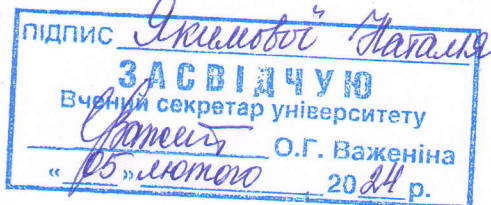 ПІДПИС Якимової Наталія
ЗАСВІДЧУЮ
Вчений секретар університету
О.Г. Важеніна
« 05 » лютого 2024 р.